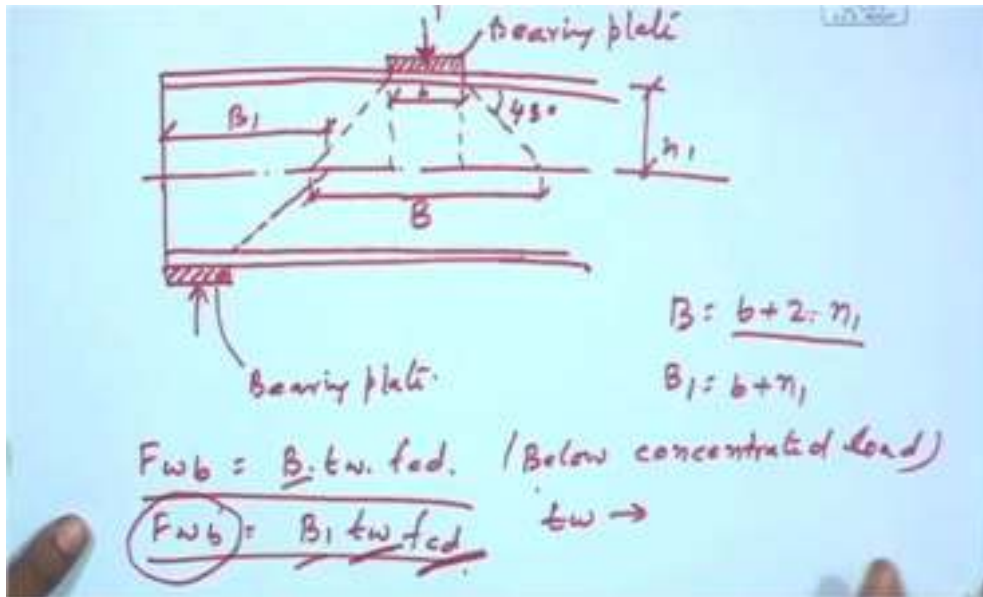 Bearing plate
B1
b
45°
n1
B
Bearing plate.
B = b + 2. n1
B1 = b + n1
Fwb = B. tw. fcd. (Below concentrated load)
Fwb = B1 tw fcd.
tw →